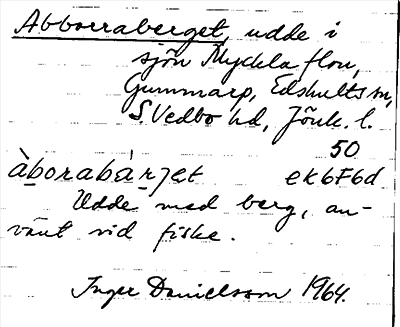 Abborraberget, udde i
sjön Myckla flon,
Gummarp, Edshults sn,
S. Vedbo hd, Jönk. l.
50
àborabàrjet ek6F6d
Udde med berg, an-
vänt vid fiske.
Inger Danielsson 1964.